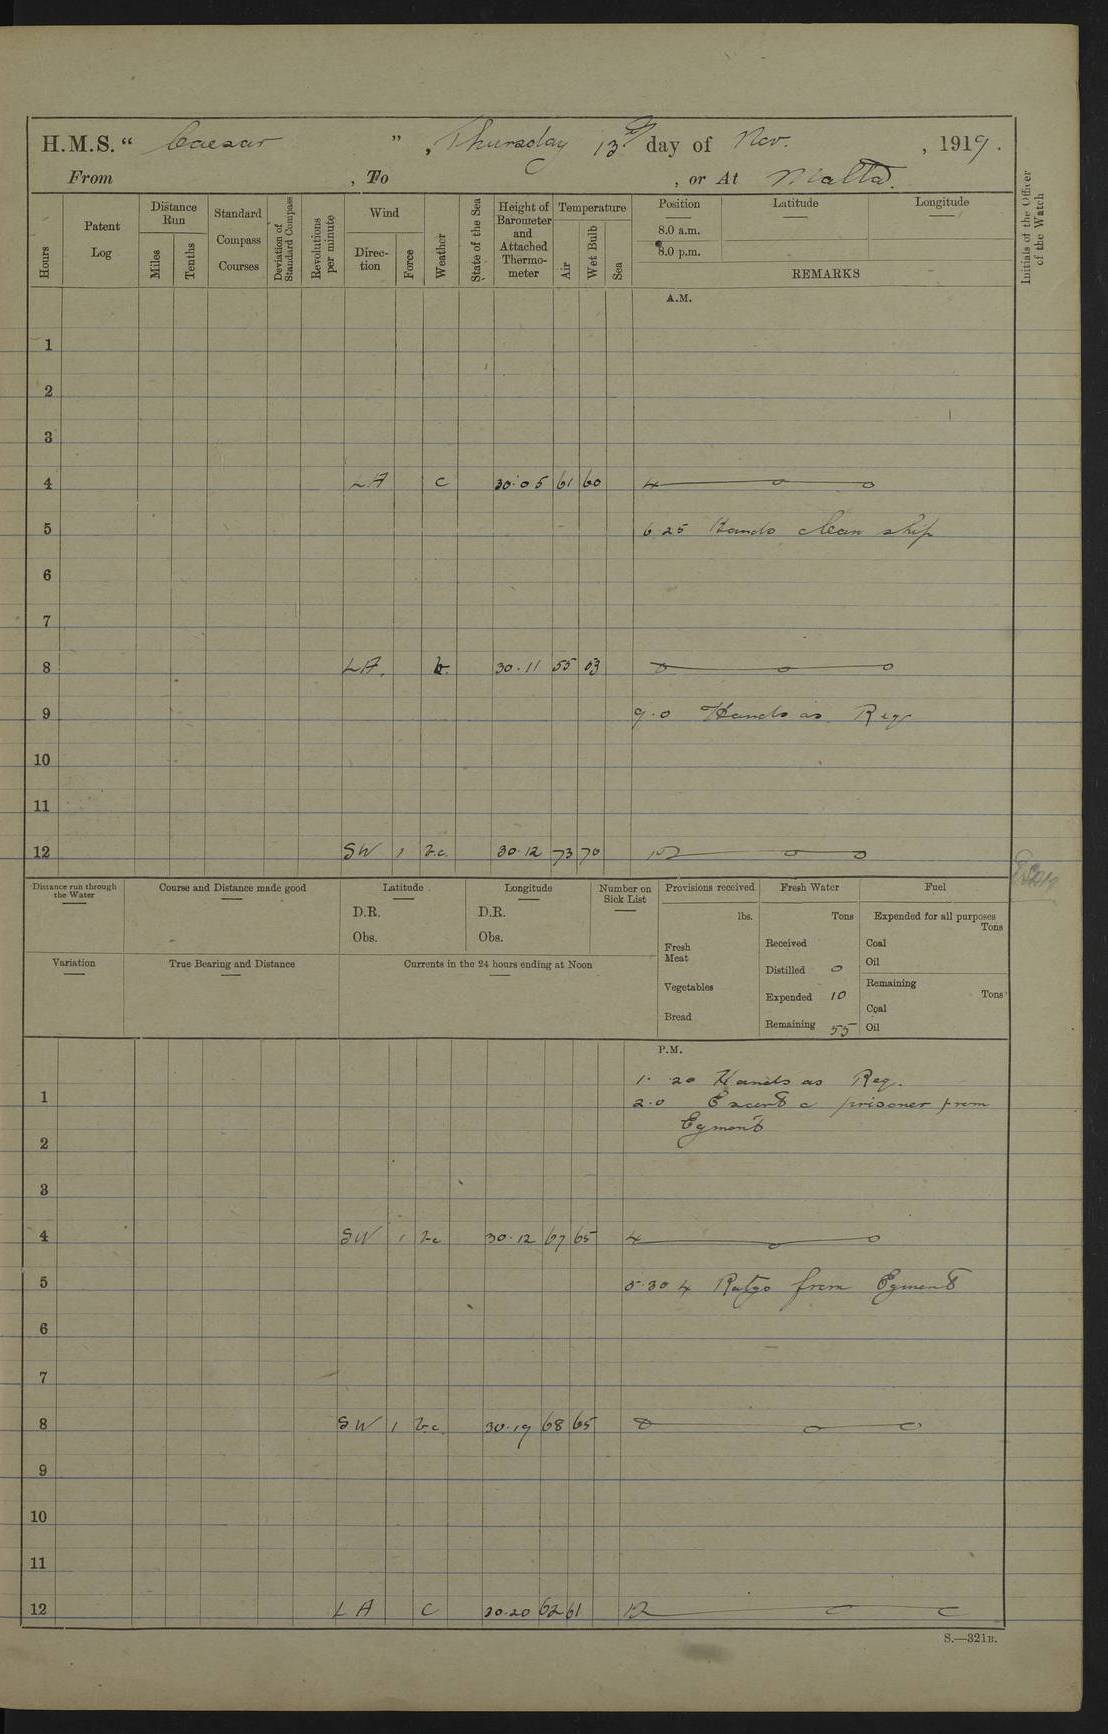 H.M.S. “ Caesar ” , Thursday 13th day of Nov. , 1919.
From , To , or At Malta.
Hours
Patent Log
Distance Run
Miles
Tenths
Standard Compass Courses
Deviation of Standard Compass
Revolutions per minute
Wind
Direction
Force
Weather
State of the Sea
Height of Barometer and Attached Thermometer
Temperature
Air
Wet Bulb
Sea
Position Latitude Longitude
8.0 a.m.
8.0 p.m.
REMARKS
Initials of the Officer of the Watch
A.M.
1
2
3
4 LA c 30.05 61 60 4 o o
5 6 25 Hands clean ship
6
7
8 LA. b. 30.11 55 53 8 o o
9 9.0 Hands as Req
10
11
12 SW 1 b.c. 30.12 73 70 12 o o
Distance run through the Water
Course and Distance made good
Latitude
D.R.
Obs.
Longitude
D.R.
Obs.
Number on Sick List
Provisions received
lbs.
Fresh Meat
Vegetables
Bread
Fresh Water
Tons
Received
Distilled 0
Expended 10
Remaining 55
Fuel
Expended for all purposes
Tons
Coal
Oil
Remaining
Tons
Coal
Oil
Variation
True Bearing and Distance
Currents in the 24 hours ending at Noon
P.M.
1. 20 Hands as Req.
1 2.0 Escort & prisoner from
Egmont
2
3
4 SW 1 b.c 30.12 67 65 4 o o
5 5.30 4 Ratgs from Egmont
6
7
8 SW 1 b.c. 30.19 68 65 8 o o
9
10
11
12 LA c 30.20 62 61 12 o o
S.—321B.